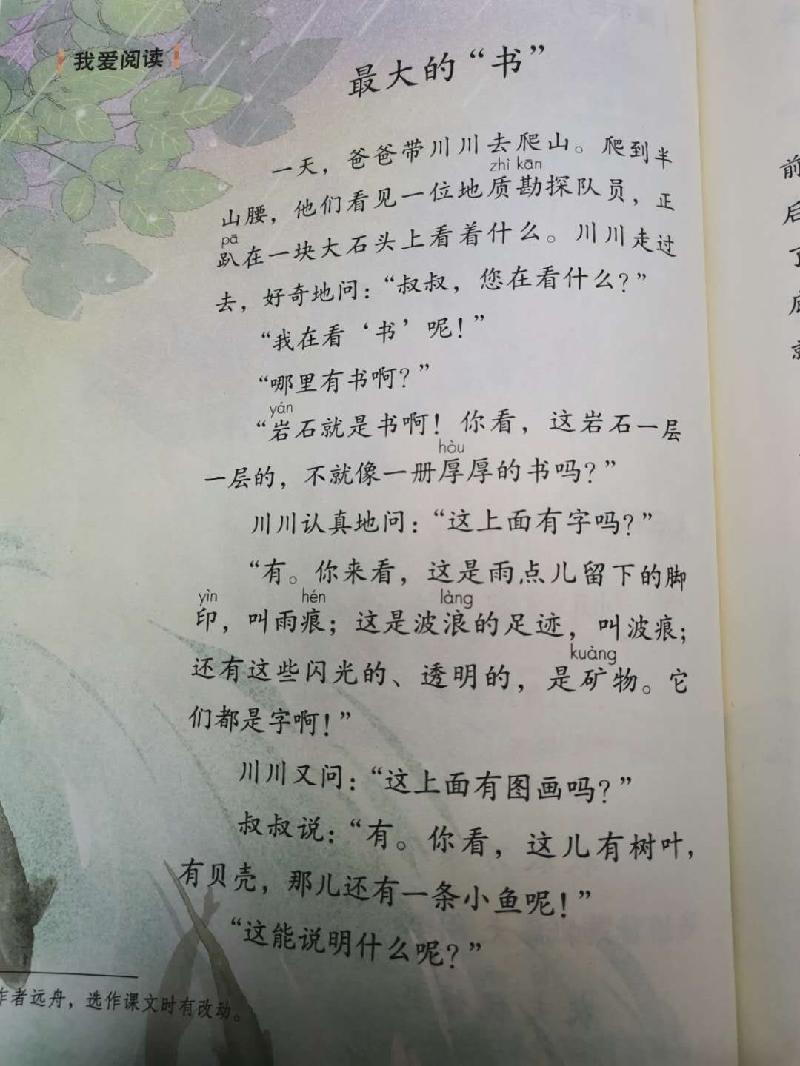 我爱阅读
最大的“书”
一天，爸爸带川川去爬山。爬到半
zhì kān
山腰，他们看见一位地质勘探队员，正
pā
趴在一块大石头上看着什么。川川走过
去，好奇地问：“叔叔，您在看什么？”
“我在看‘书’呢！”
“哪里有书啊？”
yán
“岩石就是书啊！你看，这岩石一层
hòu
一层的，不就像一册厚厚的书吗？”
川川认真地问：“这上面有字吗？”
“有。你来看，这是雨点儿留下的脚
yìn hén làng
印，叫雨痕；这是波浪的足迹，叫波痕；
kuàng
还有这些闪光的、透明的，是矿物。它
们都是字啊！”
川川又问：“这上面有图画吗？”
叔叔说：“有。你看，这儿有树叶，
有贝壳，那儿还有一条小鱼呢！”
“这能说明什么呢？”
作者远舟，选作课文时有改动。
前
后
了